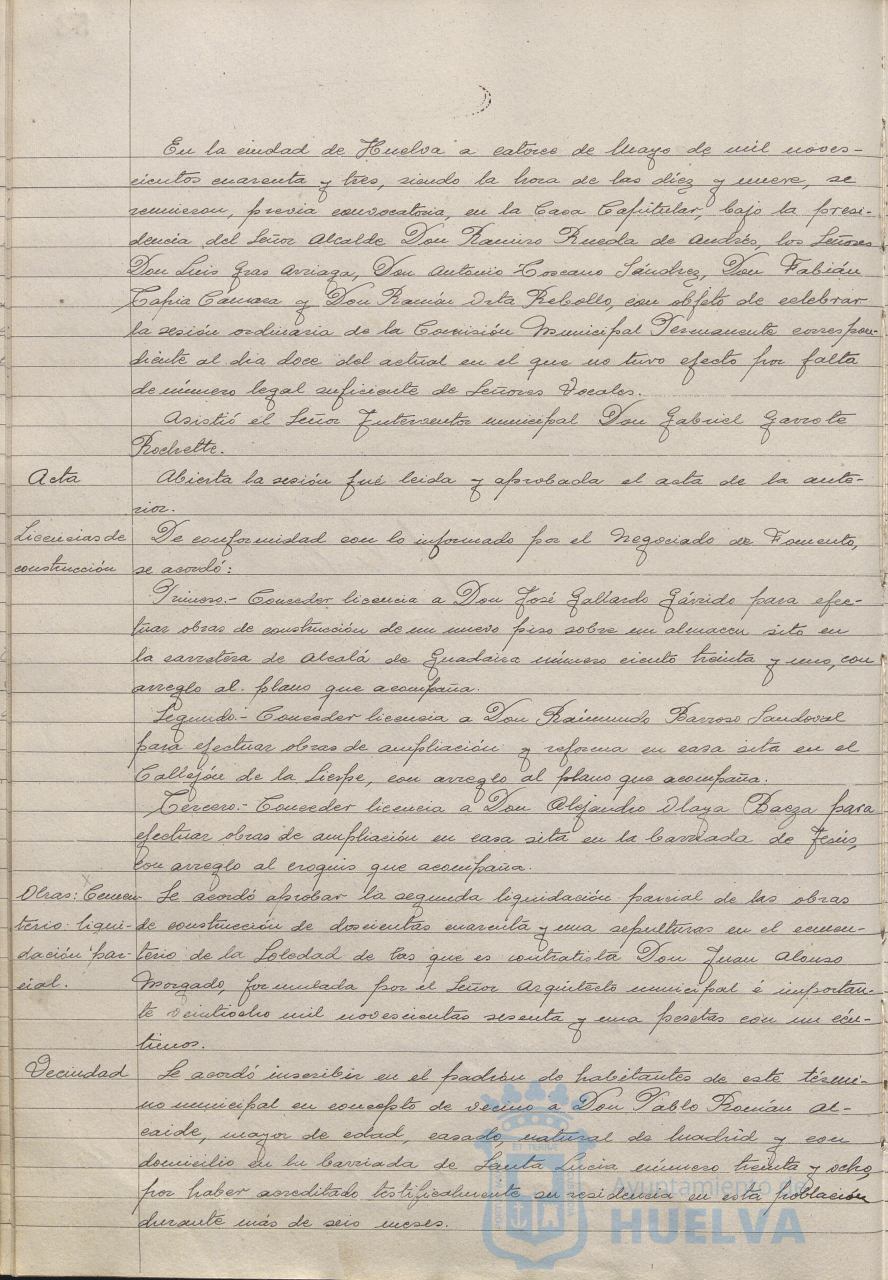 En la ciudad de Huelva a catorce de Mayo de mil noves-
cientos cuarenta y tres, siendo la hora de las diez y nueve, se
reunieron, previa convocatoria, en la Casa Capitular, bajo la presi-
dencia del Señor Alcalde Don Ramiro Rueda de Andrés, los Señores
Don Luis Gras Arriaga, Don Antonio Toscano Sánchez, Don Fabián
Tapia Cámara y Don Ramón Orta Rebollo, con objeto de celebrar
la sesión ordinaria de la Comisión Municipal Permanente correspon-
diente al dia doce del actual en el que no tuvo efecto por falta
de número legal suficiente de Señores Vocales.
Asistió el Señor Interventor municipal Don Gabriel Garrote
Rochelte.
Acta
Abierta la sesión fué leida y aprobada el acta de la ante-
rior.
Licencias de
construcción
De conformidad con lo informado por el Negociado de Fomento,
se acordó:
Primero.- Conceder licencia a Don José Gallardo Gárrido para efec-
tuar obras de construcción de un nuevo piso sobre un almacen sito en
la carretera de Alcalá de Guadaira número ciento treinta y uno, con
arreglo al plano que acompaña.
Segundo.- Conceder licencia a Don Raimundo Barroso Sandoval
para efectuar obras de ampliación y reforma en casa sita en el
Callejón de la Sierpe, con arreglo al plano que acompaña.
Tercero.- Conceder licencia a Don Alejandro Olaya Baeza para
efectuar obras de ampliación en casa sita en la barriada de Jesús,
con arreglo al croquis que acompaña.
Obras: Cemen-
terio: liqui-
dación par-
cial.
Se acordó aprobar la segunda liquidación parcial de las obras
de construcción de doscientas cuarenta y una sepulturas en el cemen-
terio de la Soledad de las que es contratista Don Juan Alonso
Morgado, formulada por el Señor Arquitecto municipal é importan-
te veintiocho mil novescientas sesenta y una pesetas con un cén-
timos.
Vecindad
Se acordó inscribir en el padrón de habitantes de este térmi-
no municipal en concepto de vecino a Don Pablo Román Al-
caide, mayor de edad, casado, natural de Madrid y con
domicilio en la barriada de Santa Lucia número treinta y ocho,
por haber acreditado testificalmente su residencia en esta población
durante más de seis meses.
Ayuntamiento de
HUELVA